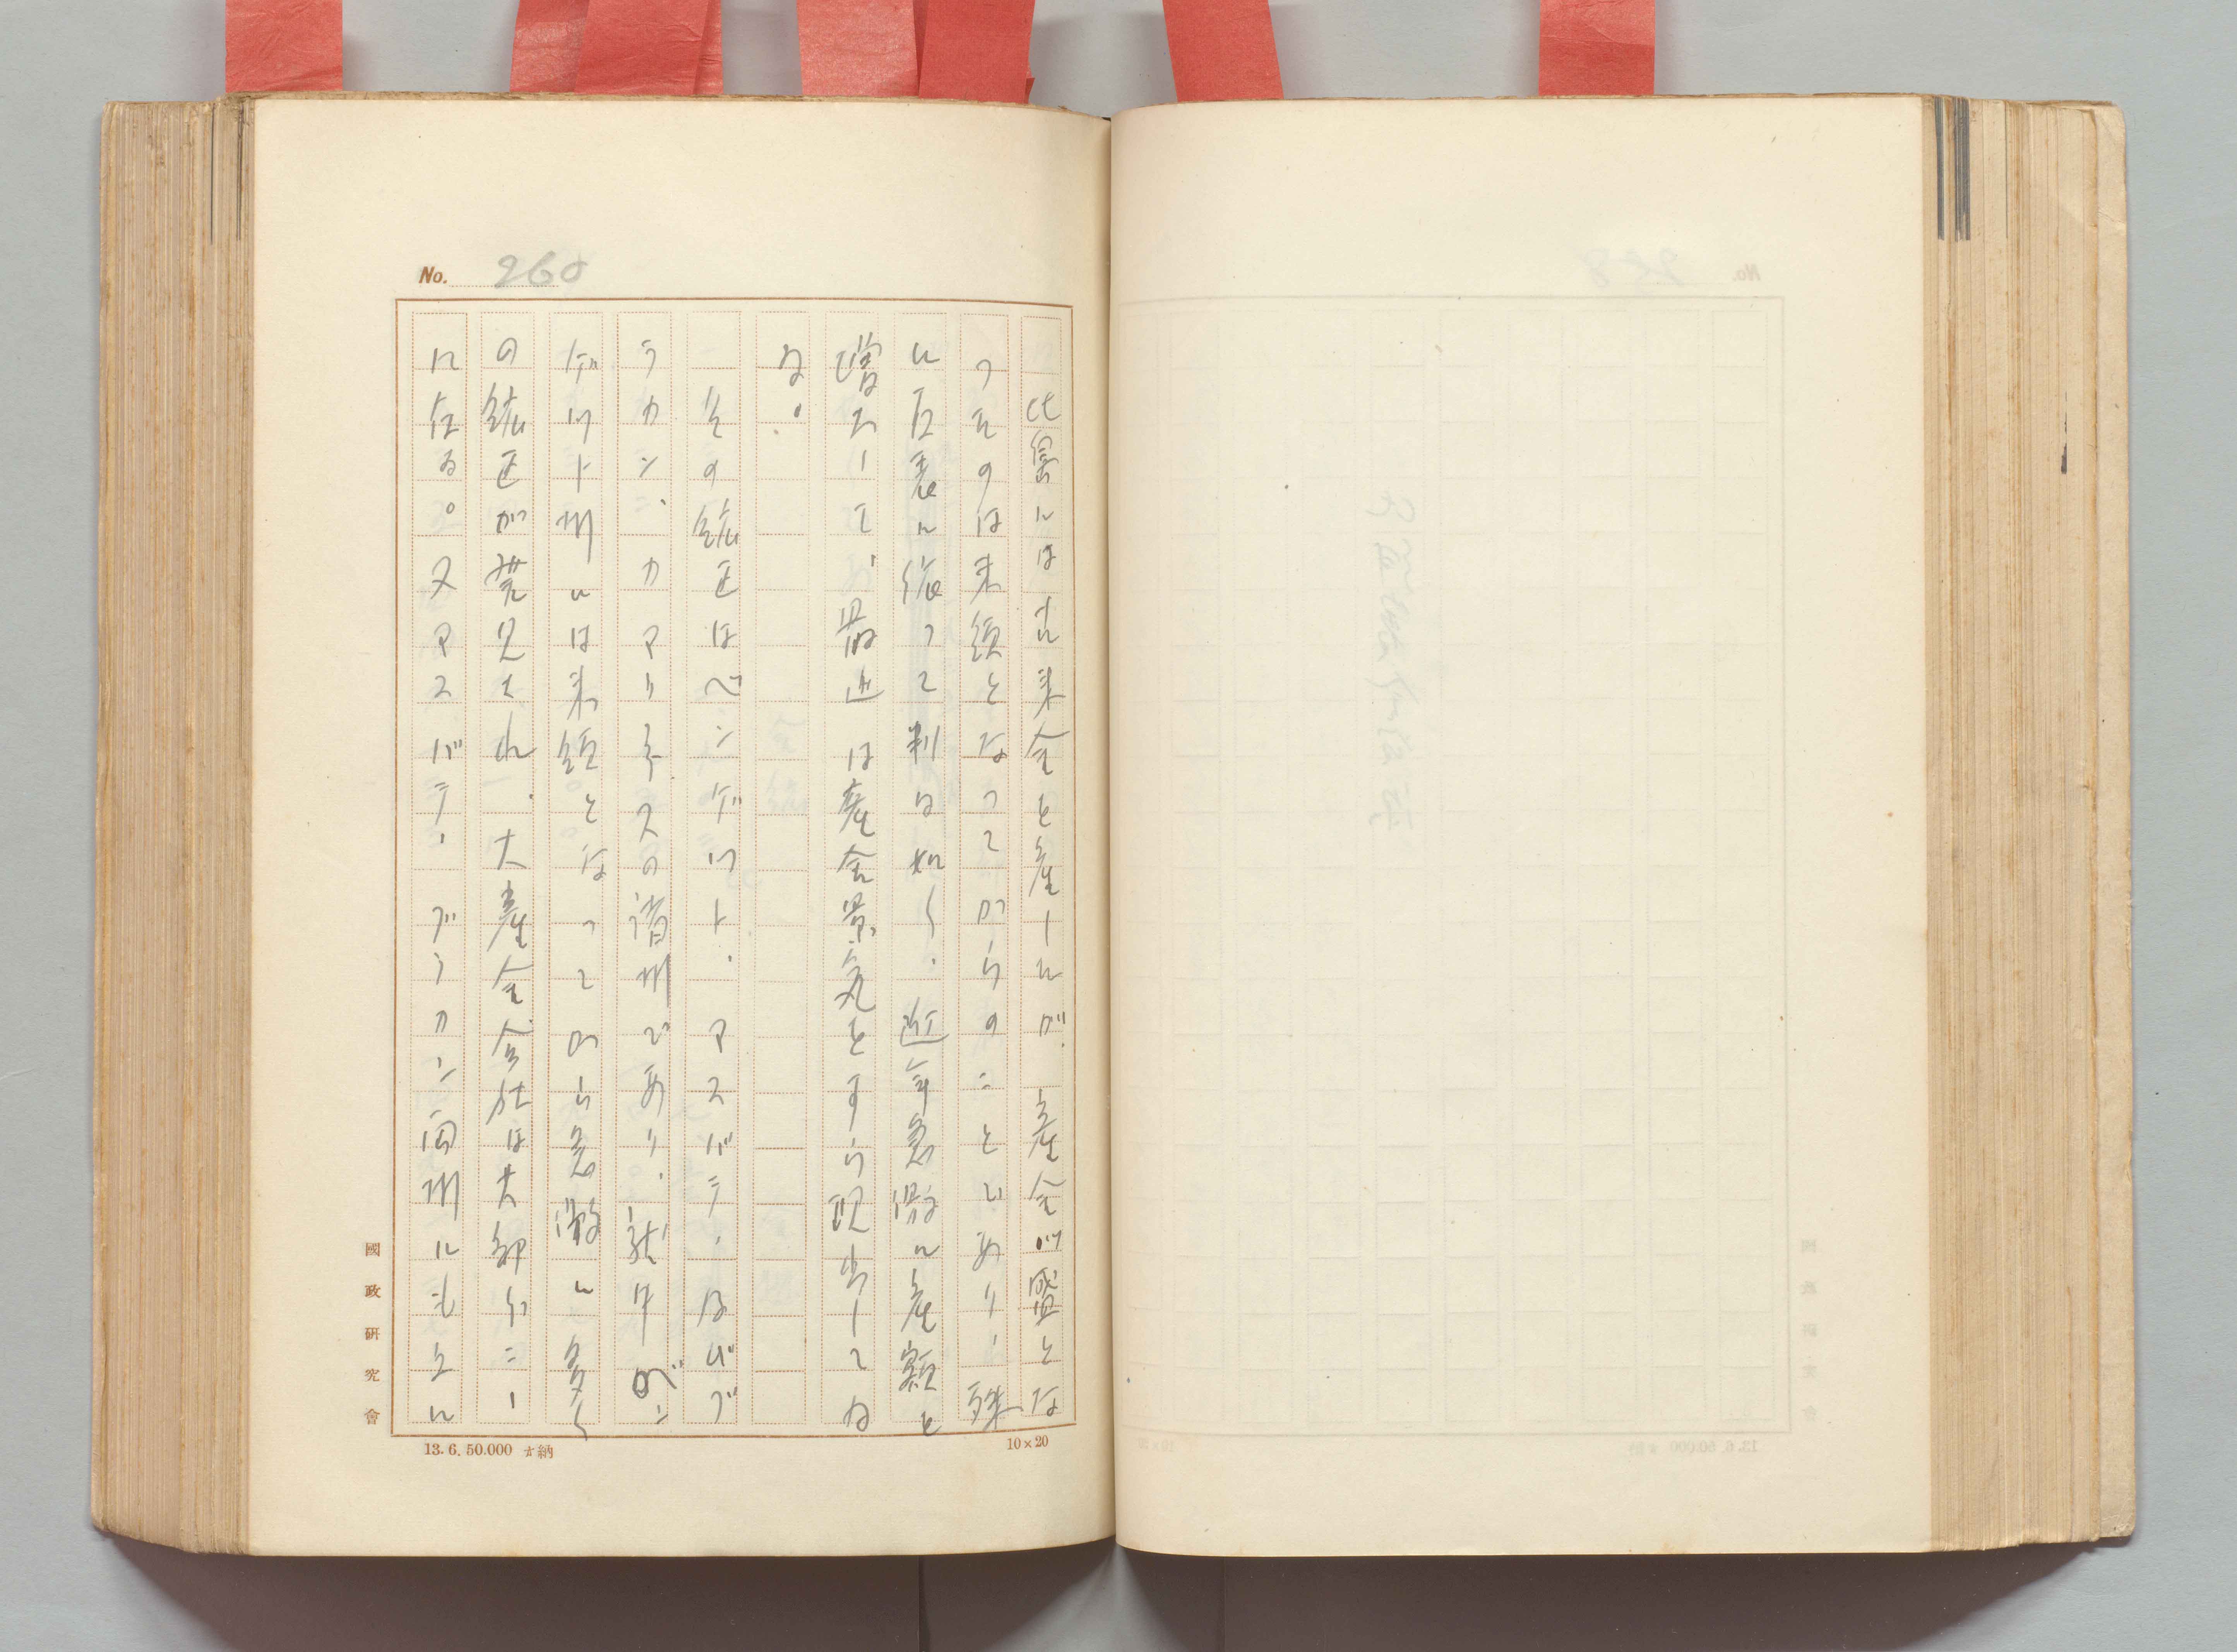 No. 260
比島には古来金を産したが、産金が盛とな
つたのは米領となつてからのことであり、殊
に左表に依つて判る如く、近年急激に産額を
増大して、最近は産金景気をすら現出してゐ
る。
金の鉱区はベンゲツト、マスバテ、及びブ
ラカン、カマリネスの諸州であり、就中ベン
ゲツト州には米領となつてから急激に多く
の鉱区が発見され、大産金会社は大部分こゝ
に在る。又マスバテ、ブラカン両州にも主に
國政研究會
13.6.50.000 納
10×20